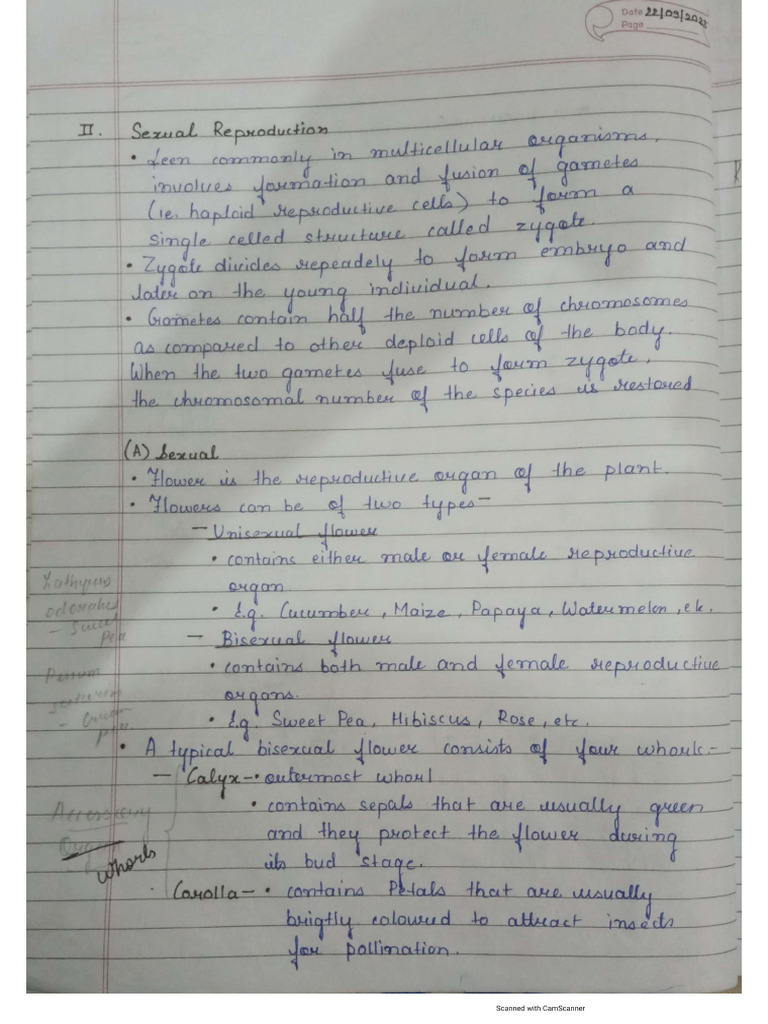 Date 22/09/2022
Page
II. Sexual Reproduction
• Seen commonly in multicellular organisms,
involves formation and fusion of gametes
(ie. haploid reproductive cells) to form a
single celled structure called zygote.
• Zygote divides repeadely to form embryo and
later on the young individual.
• Gametes contain half the number of chromosomes
as compared to other deploid cells of the body.
When the two gametes fuse to form zygote,
the chromosomal number of the species is restored
(A) Sexual
• Flower is the reproductive organ of the plant.
• Flowers can be of two types-
- Unisexual flower
• contains either male or female reproductive
organ.
• E.g. Cucumber, Maize, Papaya, Watermelon, etc.
- Bisexual flower
• contains both male and female reproductive
organs.
• E.g. Sweet Pea, Hibiscus, Rose, etc.
Lathyrus
odoratus
- Sweet
Pea
- 
pea
• A typical bisexual flower consists of four whorls-
- Calyx-• outermost whorl
• contains sepals that are usually green
and they protect the flower during
its bud stage.
Accessory
whorls
Corolla-• contains Petals that are usually
brigtly coloured to attract insects
for pollination.
Scanned with CamScanner